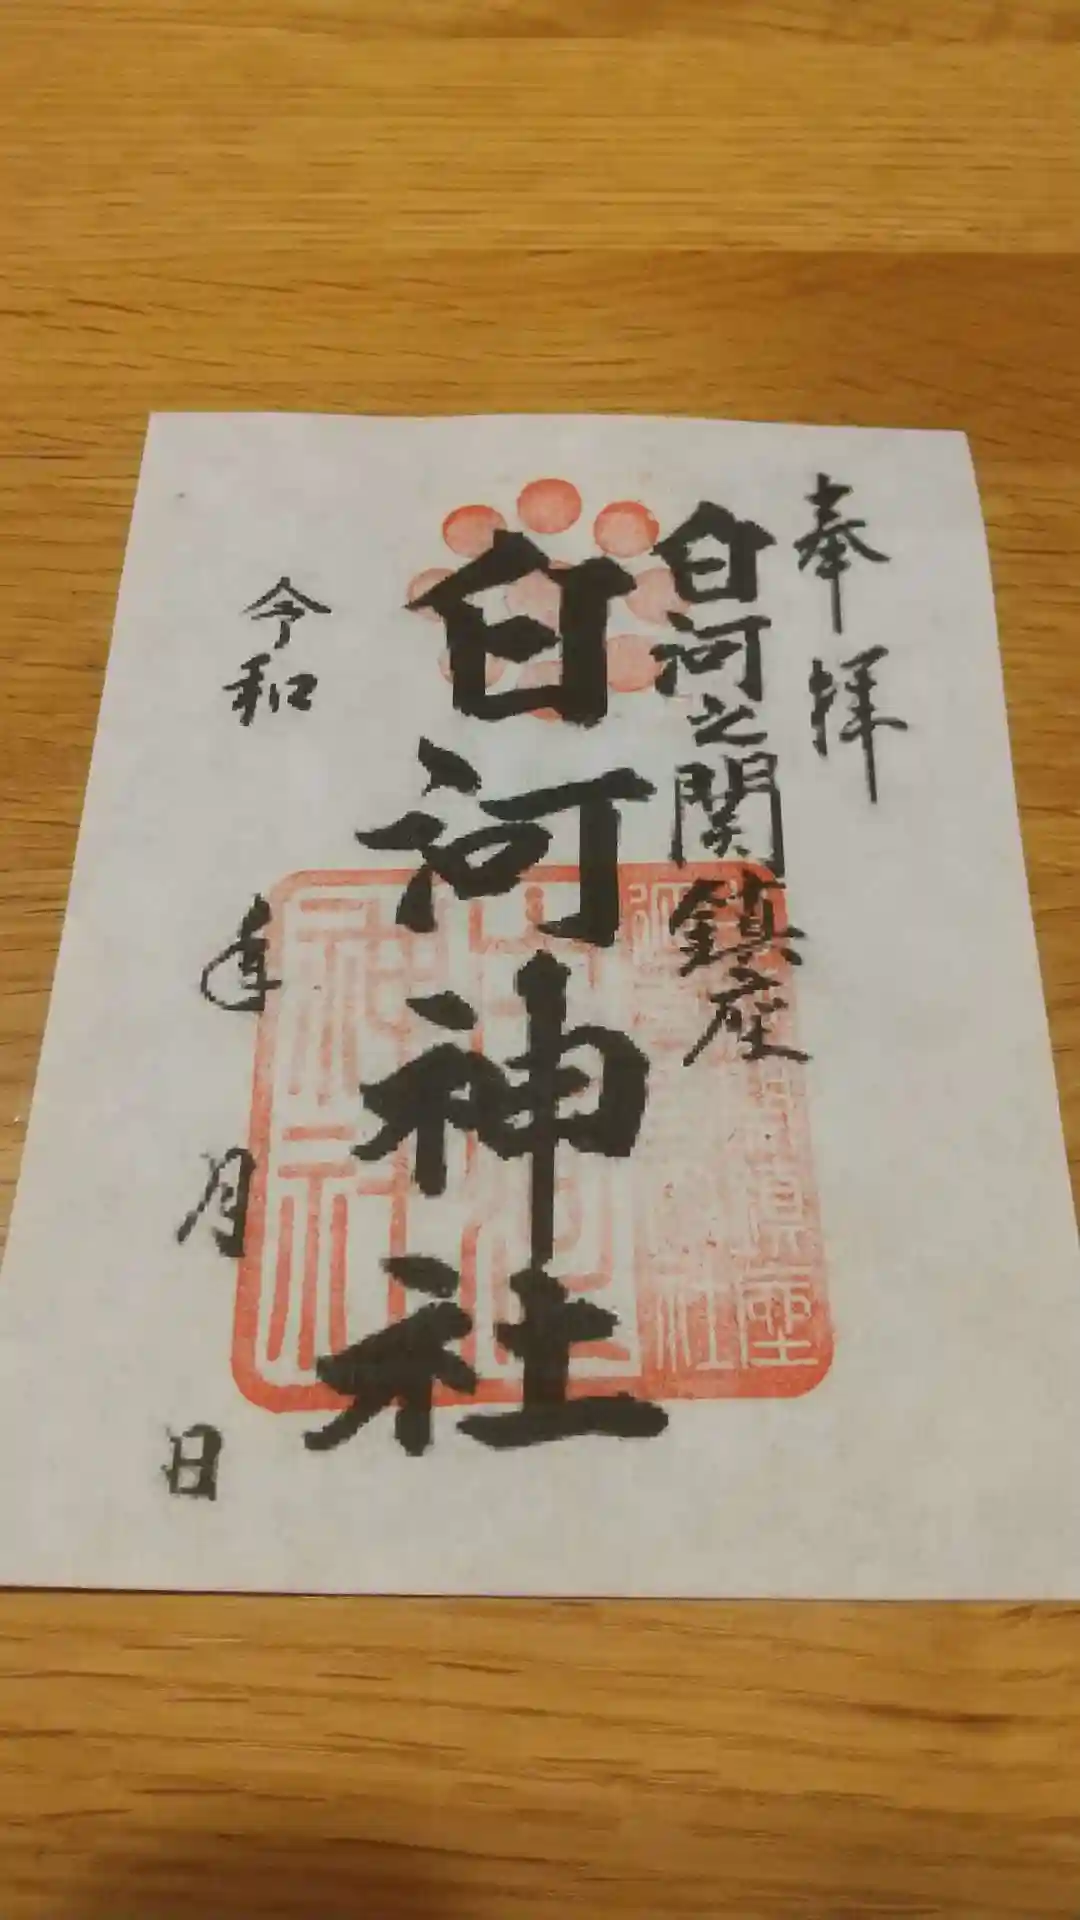 奉拝
白河之関鎮座
白河神社
令和 年 月 日